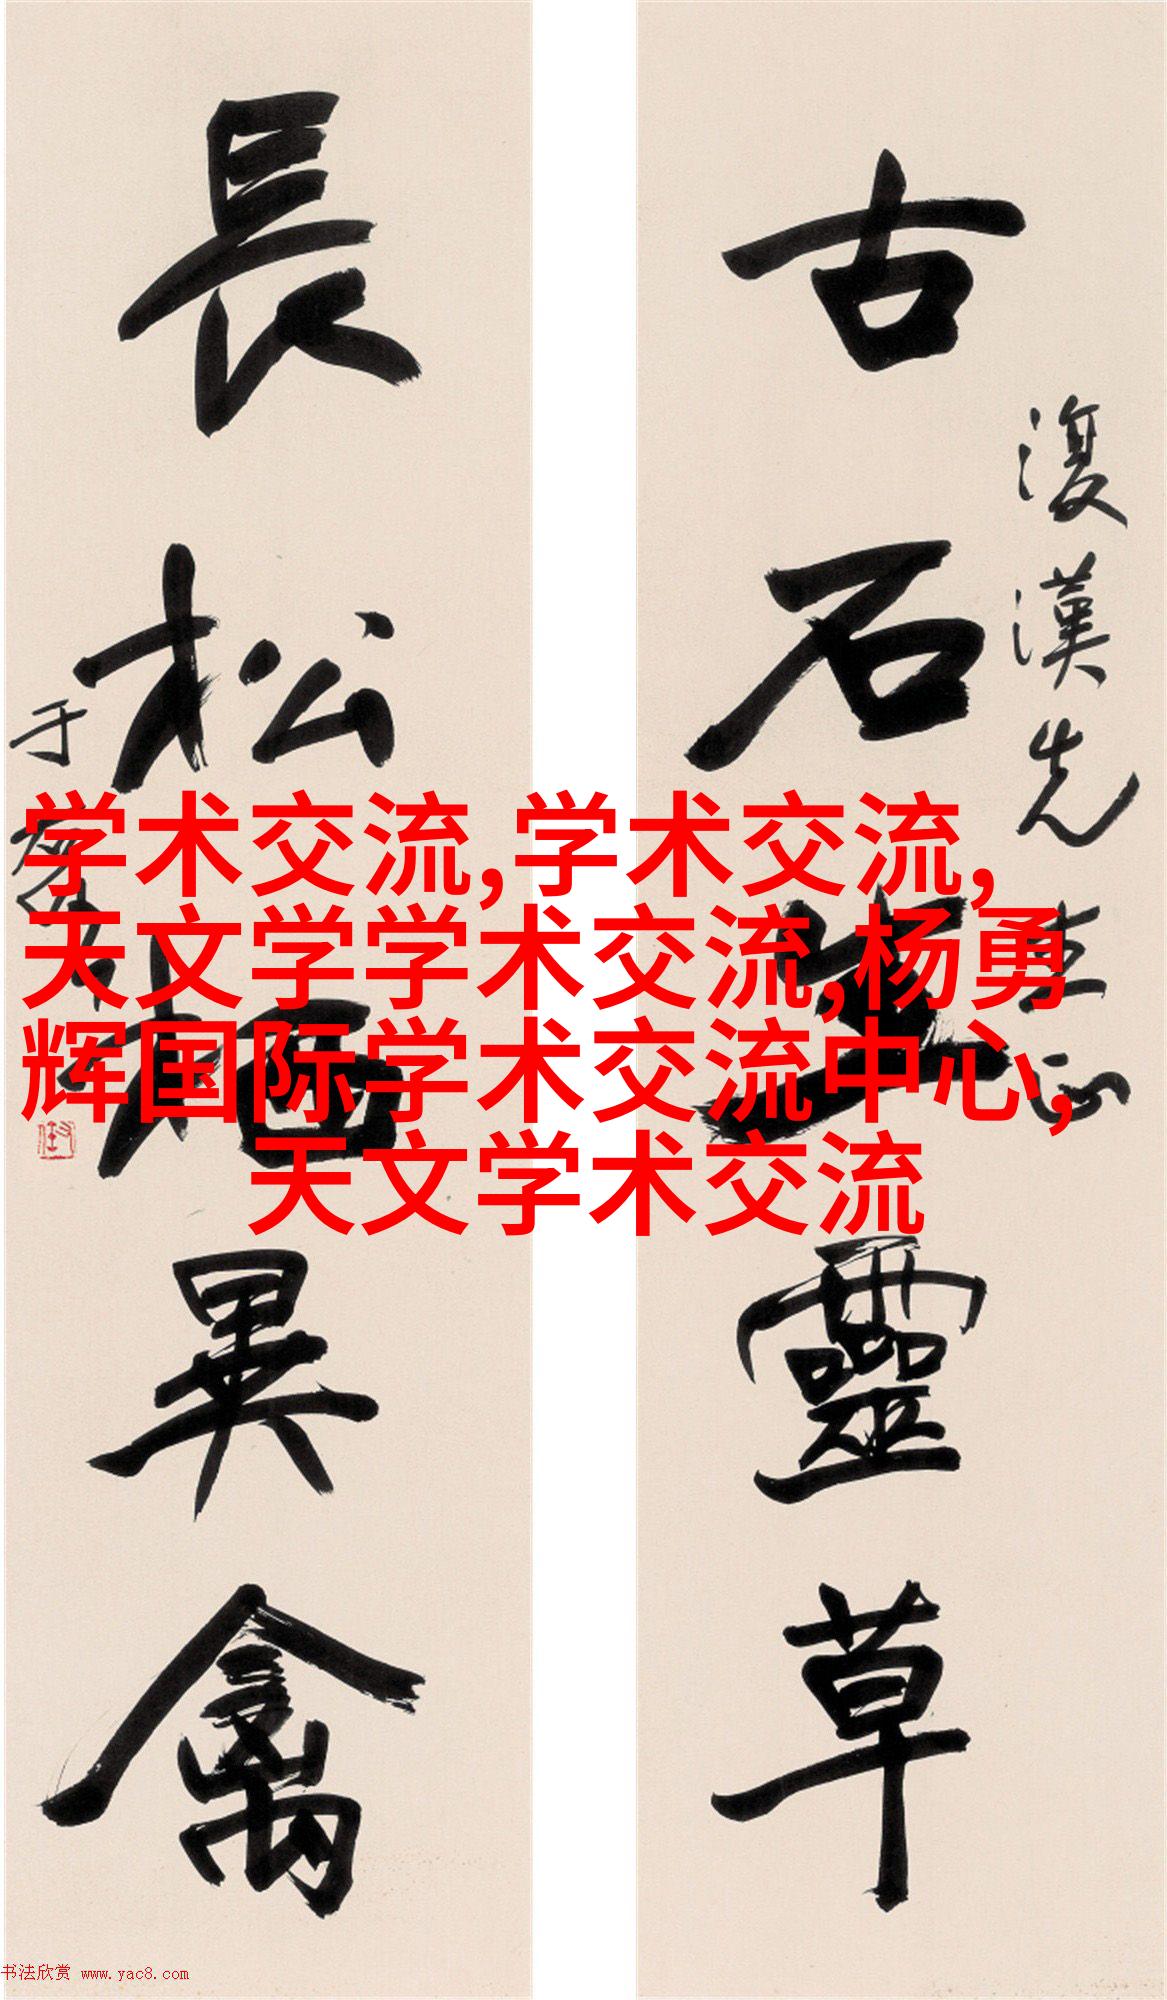 古石生靈草
復漢先生正
長松栖異禽
于右任
学术交流,学术交流,
天文学学术交流,杨勇
辉国际学术交流中心,
天文学术交流
书法欣赏 www.yac8.com